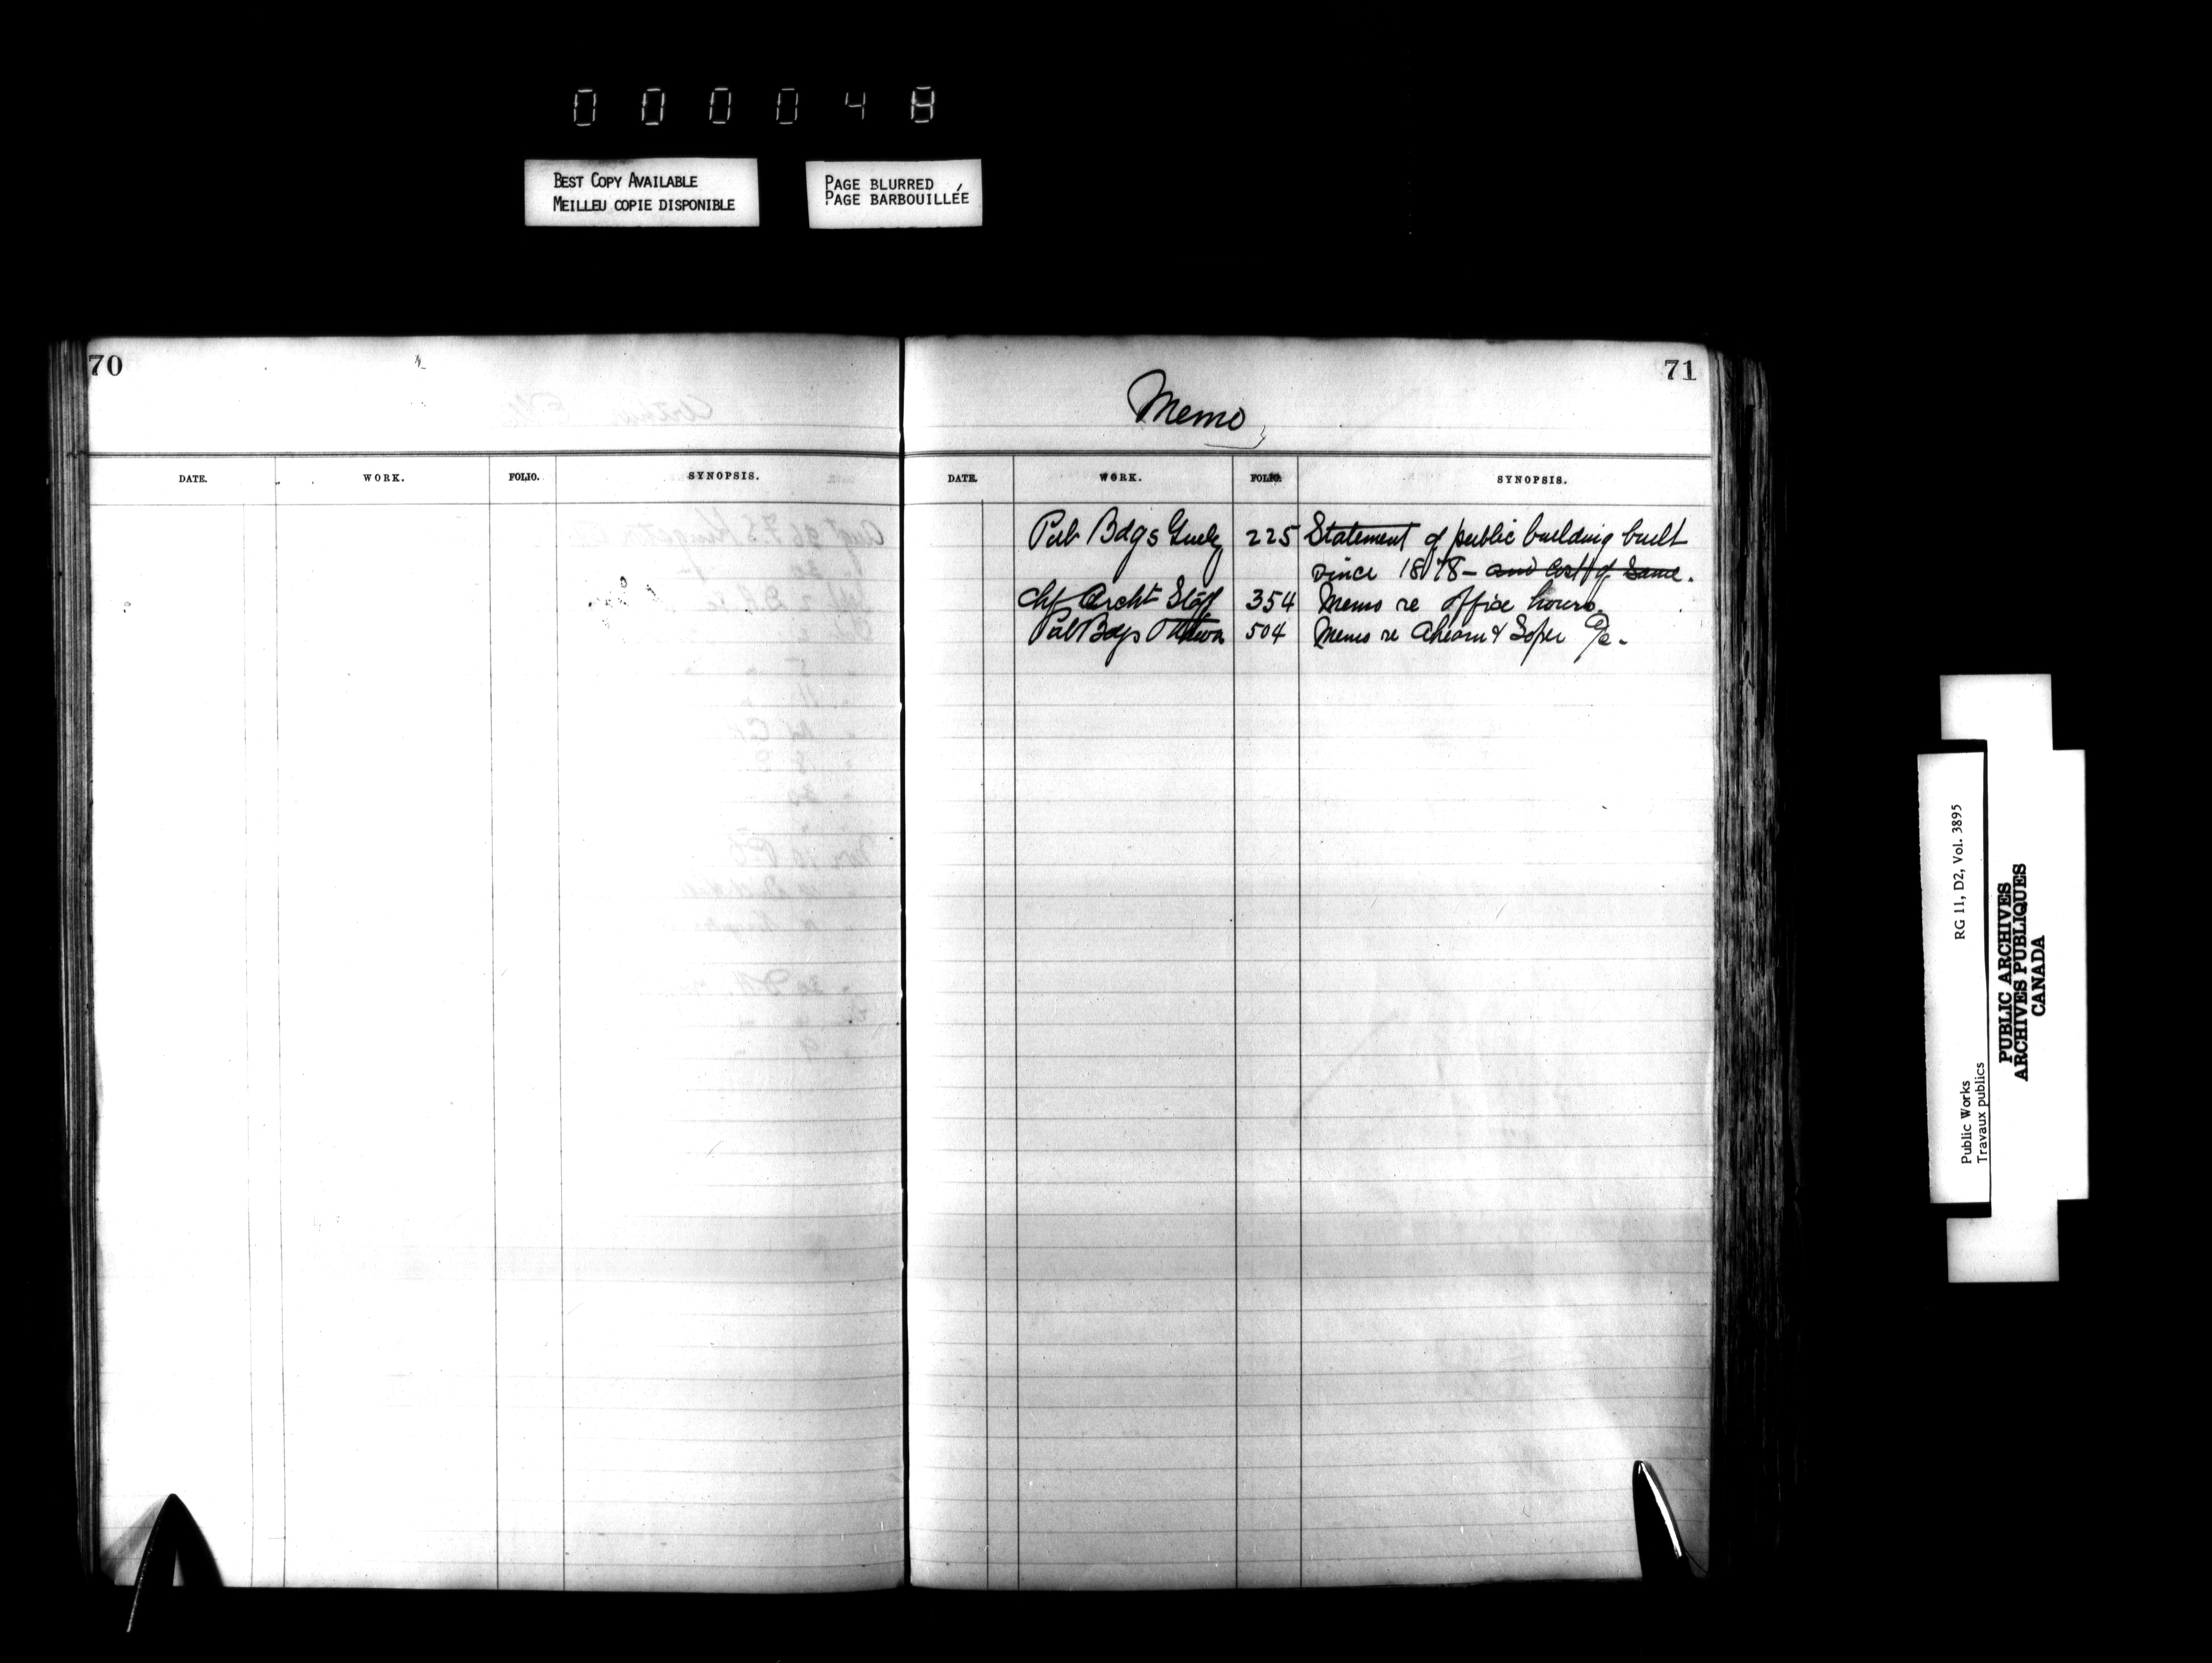 000048
BEST COPY AVAILABLE
MEILLEU COPIE DISPONIBLE
PAGE BLURRED
PAGE BARBOUILLÉE
70
DATE. WORK. FOLIO. SYNOPSIS.
71
Memo
DATE. WORK. FOLIO. SYNOPSIS.
Pub Bdgs 225 Statement of public building built
since 1878 - and Cost of Same.
Chf Archt Staff 354 Memo re Office hours.
Pub Bdgs Ottawa 504 Memo re Ahearn & Soper a/c-
Public Works RG 11, D2, Vol. 3895
Travaux publics
PUBLIC ARCHIVES
ARCHIVES PUBLIQUES
CANADA